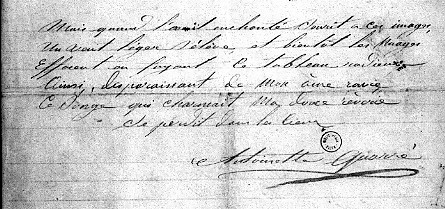 Mais quand l'œil enchanté sourit à ces images,
Un vent léger s'élève, et bientôt les nuages
Effacent en fuyant ce tableau radieux
Ainsi, disparaissant de mon âme ravie
Ce songe qui charmait ma douce rêverie
Se perdit dans les cieux
Antoinette Quarré